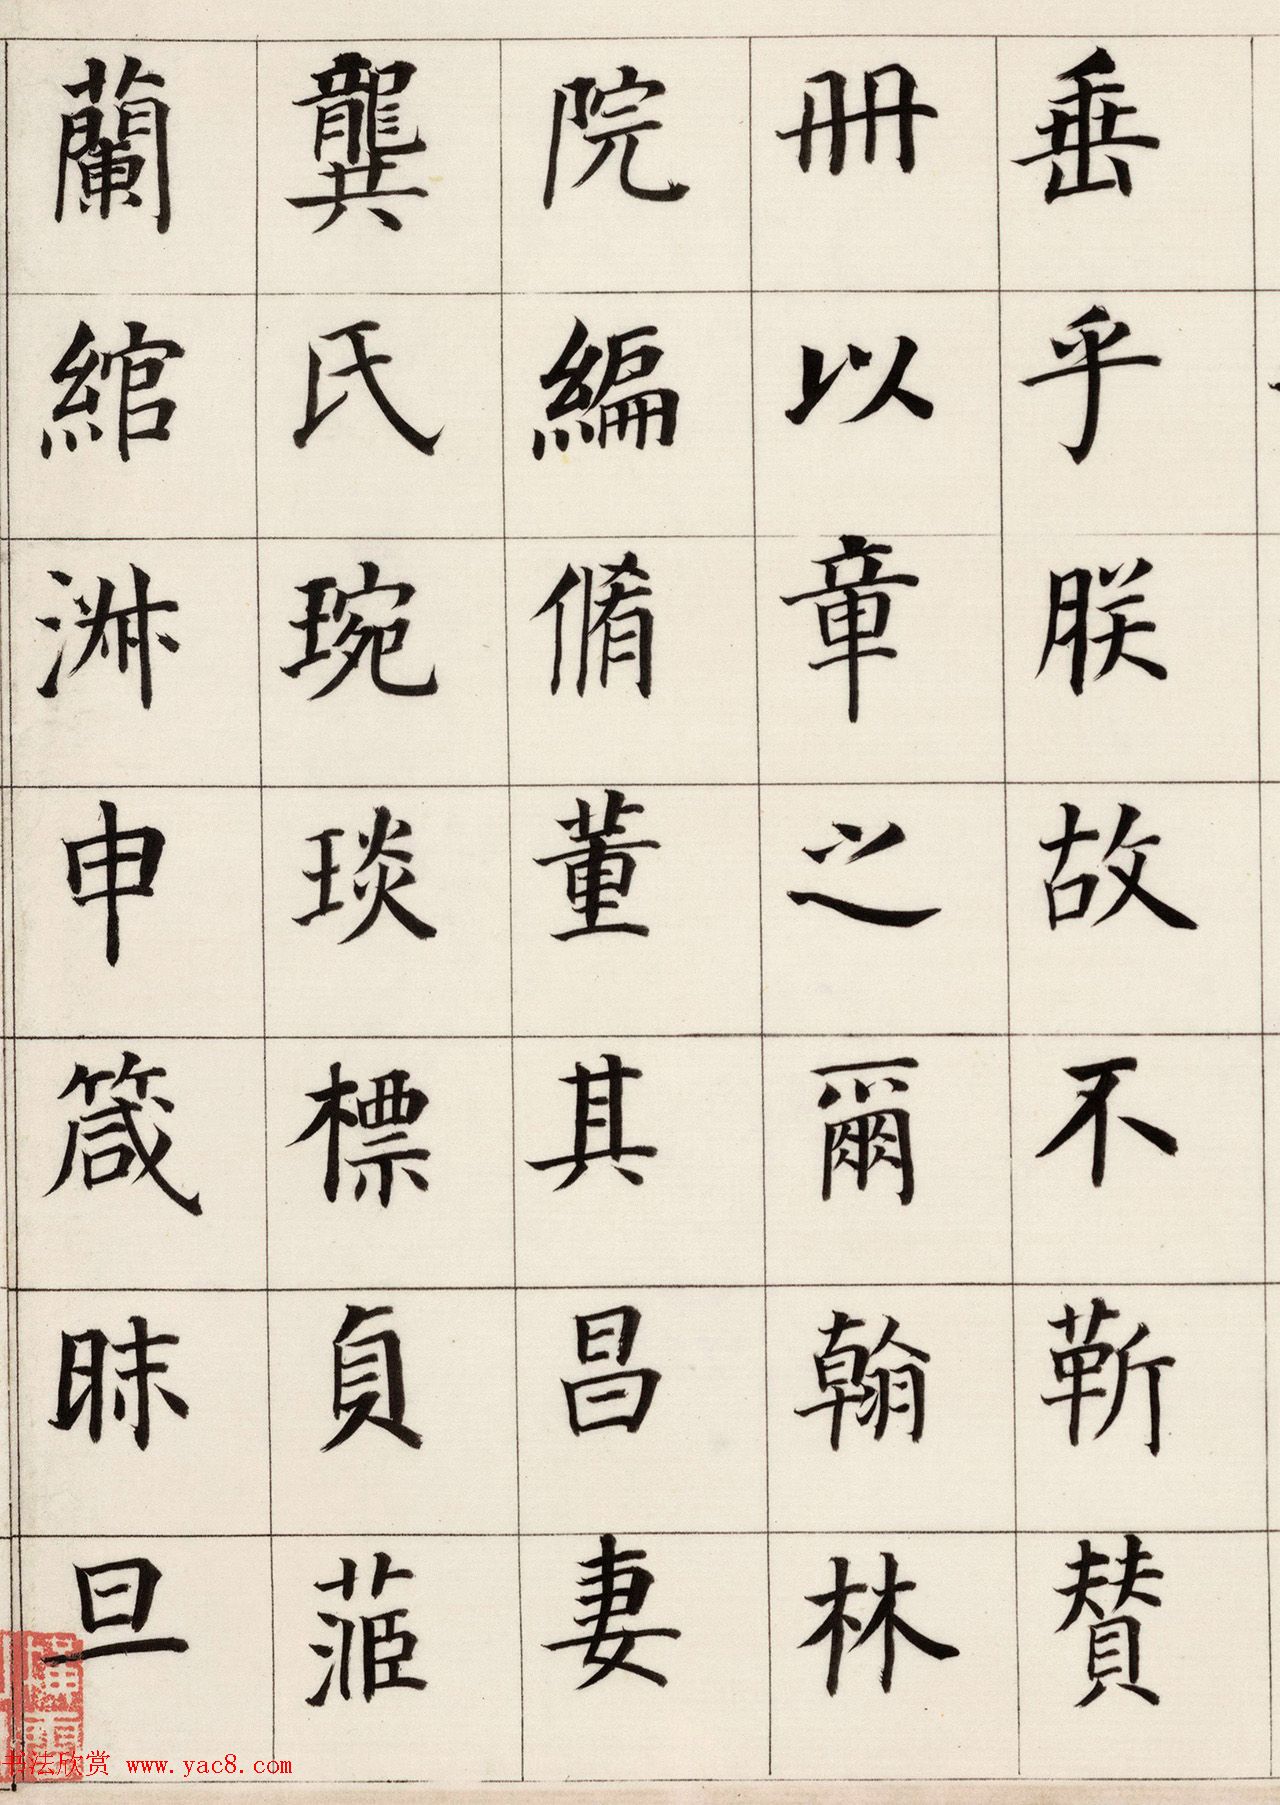 垂乎朕故不蘄贊
冊以章之爾翰林
院編脩董其昌妻
龔氏琬琰標貞茝
蘭綰淋申箴昧旦
书法欣赏 www.yac8.com